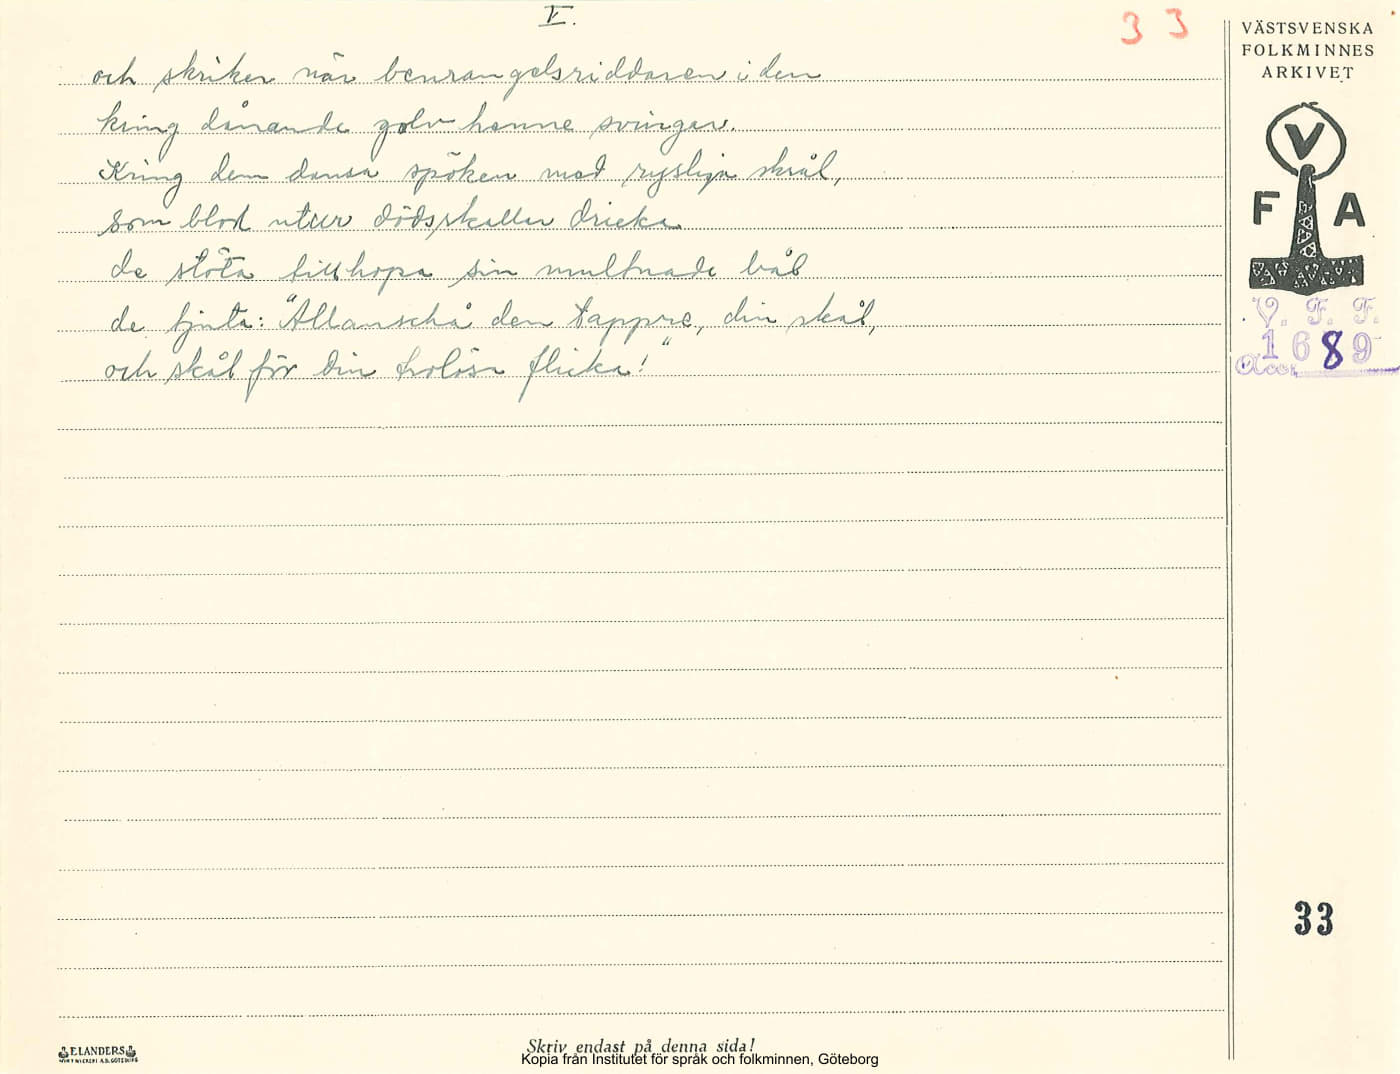 V.
33
och skriker när benrangelsriddaren i den
kring dånande golv henne svinger.
Kring dem dansa spöken med rysliga skrål,
som blod utur dödsskallar dricka
de stöta tillhopa sin multnade bål
de tjuta: "Allanschå den tappre, din skål,
och skål för din trolösa flicka!"
VÄSTSVENSKA
FOLKMINNES
ARKIVET
V
F A
V. F. F.
1689
Acc.
33
ELANDERS
Skriv endast på denna sida!
Kopia från Institutet för språk och folkminnen, Göteborg